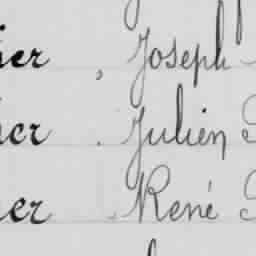 ier, Joseph
ier. Julien
ier. René